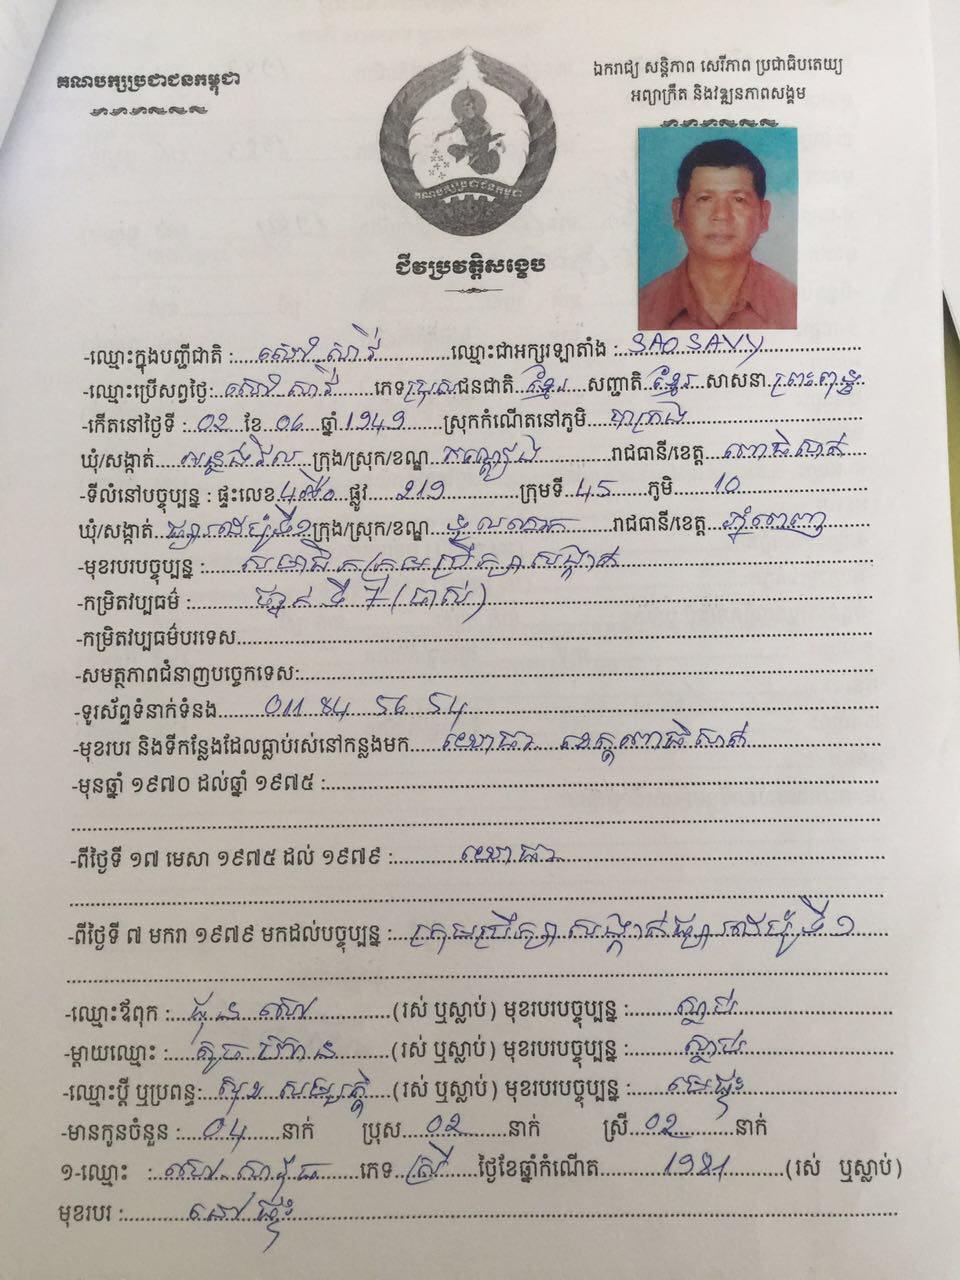 គណបក្សប្រជាជនកម្ពុជា
ឯករាជ្យ សន្តិភាព សេរីភាព ប្រជាធិបតេយ្យ
អព្យាក្រឹត និងវឌ្ឍនភាពសង្គម
គណបក្សប្រជាជនកម្ពុជា
ជីវប្រវត្តិសង្ខេប
-ឈ្មោះក្នុងបញ្ជីជាតិ : សៅ សាវី ឈ្មោះជាអក្សរឡាតាំង : SAO SAVY
-ឈ្មោះប្រើសព្វថ្ងៃ: សៅ សាវី ភេទ ប្រុស ជនជាតិ ខ្មែរ សញ្ជាតិ ខ្មែរ សាសនា ព្រះពុទ្ធ
-កើតនៅថ្ងៃទី : 02 ខែ 06 ឆ្នាំ 1949 ស្រុកកំណើតនៅភូមិ
ឃុំ/សង្កាត់ ក្រុង/ស្រុក/ខណ្ឌ កណ្ដៀង រាជធានី/ខេត្ត ពោធិសាត់
-ទីលំនៅបច្ចុប្បន្ន : ផ្ទះលេខ ផ្លូវ 219 ក្រុមទី 45 ភូមិ 10
ឃុំ/សង្កាត់ ផ្សារដេប៉ូទី១ ក្រុង/ស្រុក/ខណ្ឌ ទួលគោក រាជធានី/ខេត្ត ភ្នំពេញ
-មុខរបរបច្ចុប្បន្ន : សមាជិកក្រុមប្រឹក្សាសង្កាត់
-កម្រិតវប្បធម៌ : ថ្នាក់ ទី 7 (ចាស់)
-កម្រិតវប្បធម៌បរទេស
-សមត្ថភាពជំនាញបច្ចេកទេស:
-ទូរស័ព្ទទំនាក់ទំនង 011 84 56 54
-មុខរបរ និងទីកន្លែងដែលធ្លាប់រស់នៅកន្លងមក យោធា ខេត្តពោធិសាត់
-មុនឆ្នាំ ១៩៧០ ដល់ឆ្នាំ ១៩៧៥ :
-ពីថ្ងៃទី ១៧ មេសា ១៩៧៥ ដល់ ១៩៧៩ : យោធា
-ពីថ្ងៃទី ៧ មករា ១៩៧៩ មកដល់បច្ចុប្បន្ន : ក្រុមប្រឹក្សាសង្កាត់ផ្សារដេប៉ូទី១
-ឈ្មោះឪពុក : សៅ (រស់ ឬស្លាប់) មុខរបរបច្ចុប្បន្ន : ស្លាប់
-ម្តាយឈ្មោះ : (រស់ ឬស្លាប់) មុខរបរបច្ចុប្បន្ន : ស្លាប់
-ឈ្មោះប្តី ឬប្រពន្ធ: សុខ សម្បត្តិ (រស់ ឬស្លាប់) មុខរបរបច្ចុប្បន្ន : មេផ្ទះ
-មានកូនចំនួន : 04 នាក់ ប្រុស 02 នាក់ ស្រី 02 នាក់
១-ឈ្មោះ : សៅ ភេទ ស្រី ថ្ងៃខែឆ្នាំកំណើត 1981 (រស់ ឬស្លាប់)
មុខរបរ : នៅផ្ទះ